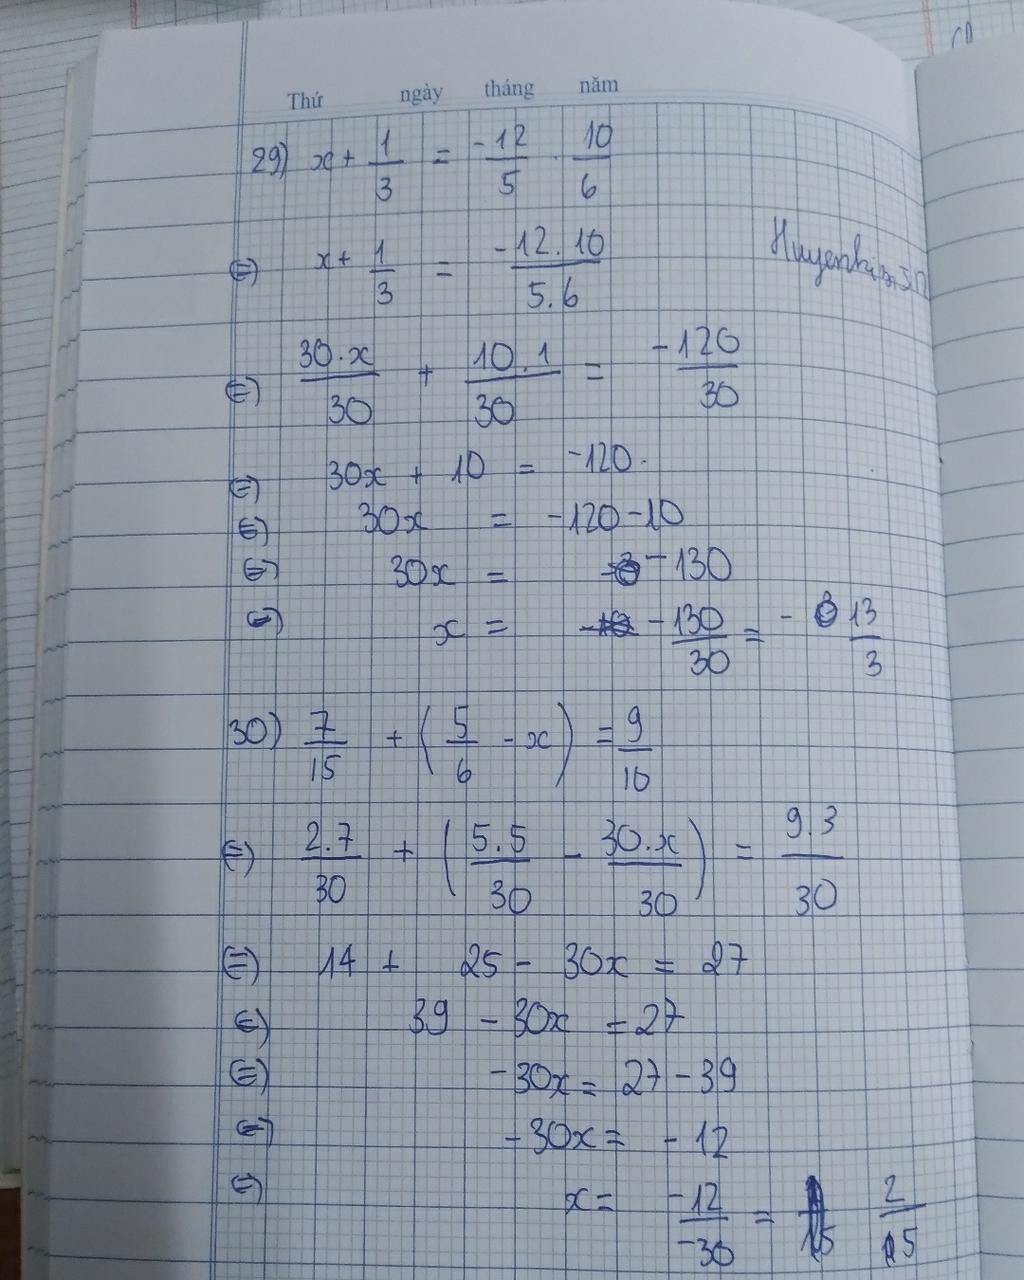 Thứ ngày tháng năm
29) x + 1/3 = -12/5 . 10/6
⇔) x + 1/3 = -12.10/5.6
⇔) 30.x/30 + 10.1/30 = -120/30
⇔) 30x + 10 = -120.
⇔) 30x = -120-10
⇔) 30x = -130
⇔) x = -130/30 = - 13/3
30) 7/15 + (5/6 - x) = 9/10
⇔) 2.7/30 + (5.5/30 - 30.x/30) = 9.3/30
⇔) 14 + 25 - 30x = 27
⇔) 39 - 30x = 27
⇔) -30x = 27 - 39
⇔) -30x = -12
⇔) x = -12/-30 = 2/5